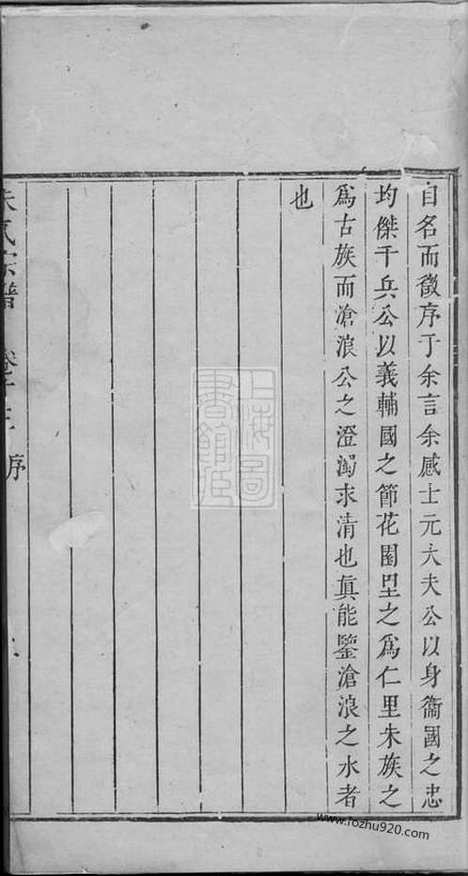 自名而徵序于余言余感士元大夫公以身衞國之忠
均傑千兵公以義輔國之節花園里之爲仁里朱族之
爲古族而滄浪公之澄濁求清也眞能鑒滄浪之水者
也
朱氏宗譜 序
上海圖書館藏
www.rozhu920.com